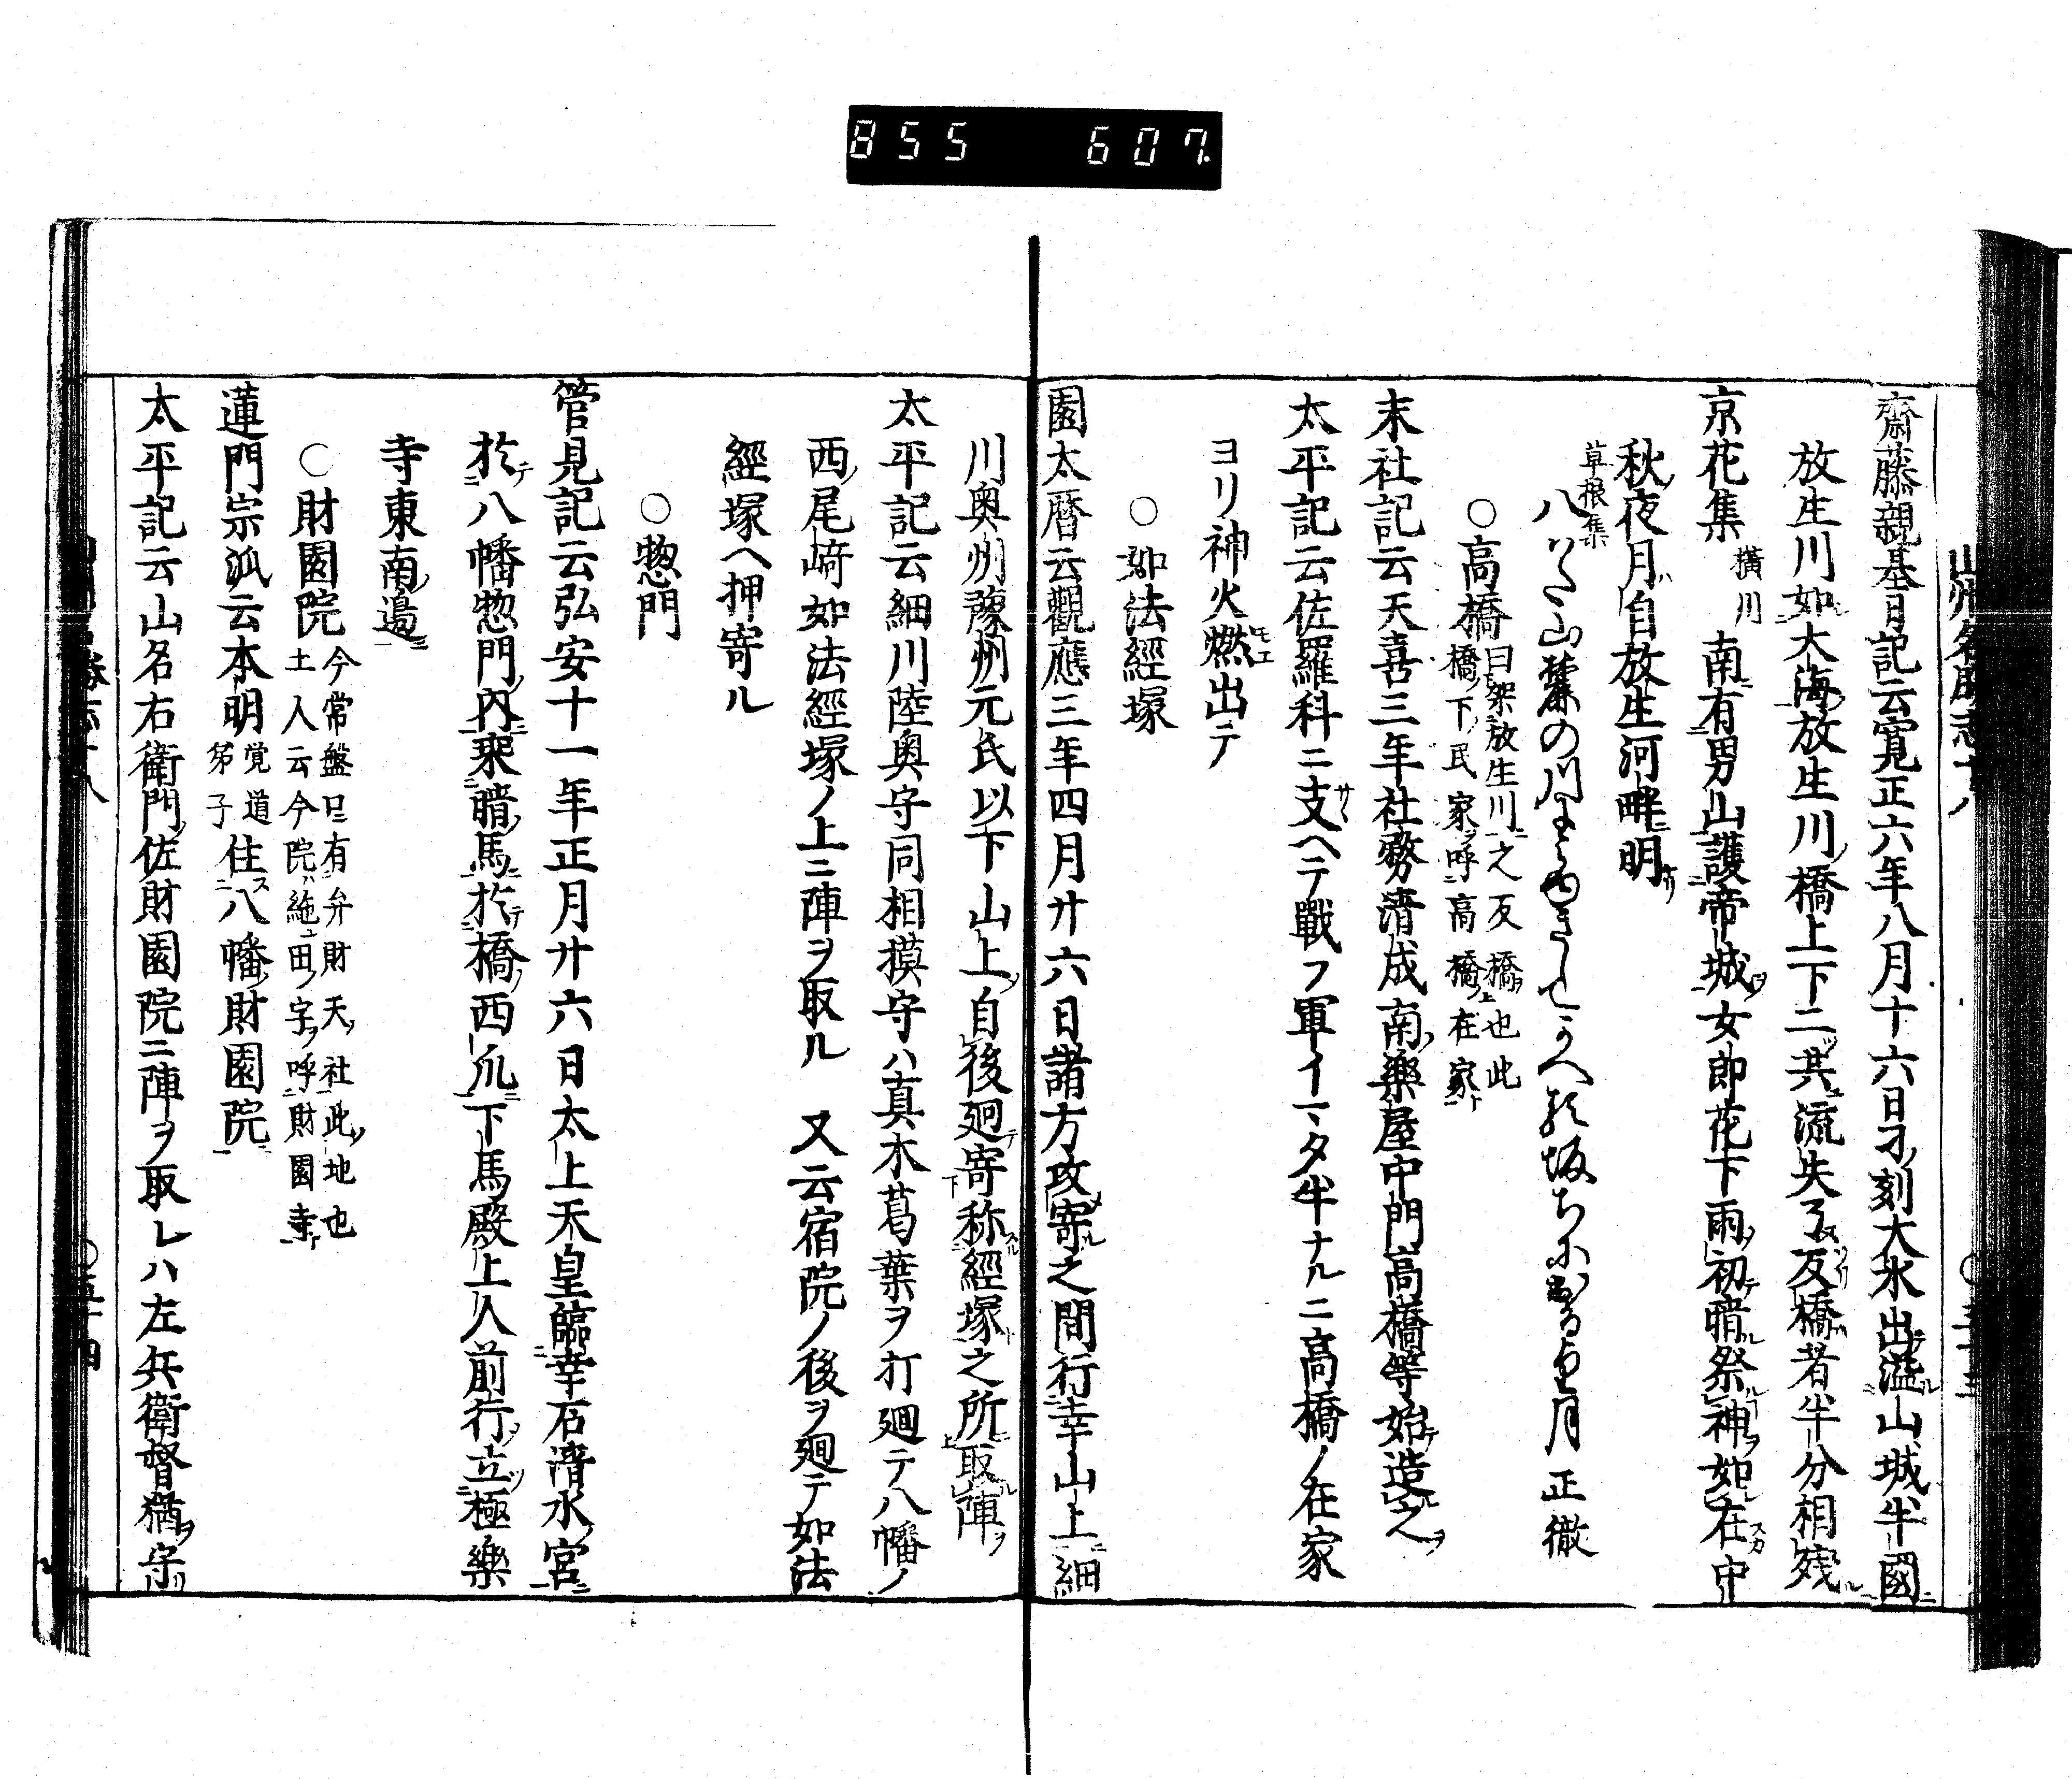 855 607
齋藤親基日記云寛正六年八月十六日子刻大水出溢山城半國
放生川如大海放生川橋上下二共流失了反橋者半分相殘
京花集 横川 南有男山護帝城女郎花下雨初暗祭神如在中
秋夜月自放生河畔明
草根集
八わた山麓の川 坂 月 正徹
○高橋 曰架放生川之反橋也此橋下民家呼高橋在家
末社記云天喜三年社務清成南樂屋中門高橋等始造之
太平記云佐羅科ニ支ヘテ戰フ軍イマタ半ナルニ高橋ノ在家
ヨリ神火燃出テ
○如法經塚
園太暦云觀應三年四月廿六日諸方攻寄之間行幸山上細
川奥州豫州元氏以下山上自後廻寄称經塚之所取陣
太平記云細川陸奥守同相摸守ハ真木葛葉ヲ打廻テ八幡ノ
西尾﨑如法經塚ノ上ニ陣ヲ取ル 又云宿院ノ後ヲ廻テ如法
經塚ヘ押寄ル
○惣門
管見記云弘安十一年正月廿六日太上天皇臨幸石清水宮
於八幡惣門内乘暗馬於橋西爪下馬殿上人前行立極樂
寺東南邊
○財園院 今常盤口有弁財天社此地也土人云今院絶田字呼財園寺
蓮門宗派云本明 覚道弟子 住八幡財園院
太平記云山名右衛門佐財園院ニ陣ヲ取レハ左兵衛督猶守